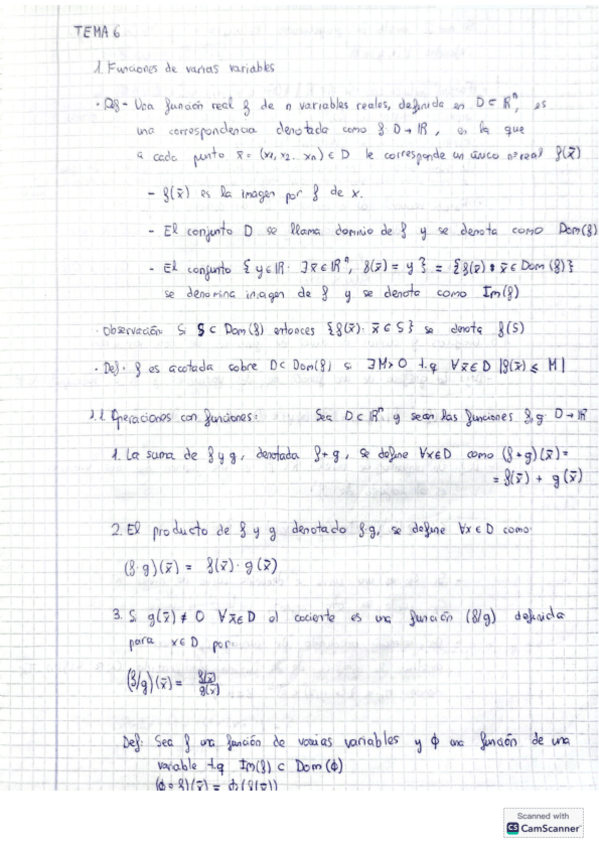 TEMA 6
1. Funciones de varias variables
· Def - Una función real f de n variables reales, definida en D ⊂ ℝⁿ, es
una correspondencia denotada como f: D → ℝ, en la que
a cada punto x̄ = (x₁, x₂... xₙ) ∈ D le corresponde un único nº real f(x̄)
- f(x̄) es la imagen por f de x.
- El conjunto D se llama dominio de f y se denota como Dom(f)
- El conjunto {y ∈ ℝ · ∃x̄ ∈ ℝⁿ, f(x̄) = y} = {f(x̄) : x̄ ∈ Dom(f)}
se denomina imagen de f y se denota como Im(f)
· Observación: Si S ⊂ Dom(f) entonces {f(x̄) · x̄ ∈ S} se denota f(S)
· Def · f es acotada sobre D ⊂ Dom(f) si ∃M>0 t.q ∀x̄ ∈ D |f(x̄) ≤ M|
1.1 Operaciones con funciones: Sea D ⊂ ℝⁿ y sean las funciones f, g: D → ℝ
1. La suma de f y g, denotada f+g, se define ∀x ∈ D como (f+g)(x̄) =
= f(x̄) + g(x̄)
2. El producto de f y g denotado f·g, se define ∀x ∈ D como:
(f·g)(x̄) = f(x̄) · g(x̄)
3. Si g(x̄) ≠ 0 ∀x̄ ∈ D el cociente es una función (f/g) definida
para x ∈ D por:
(f/g)(x̄) = f(x̄)/g(x̄)
Def: Sea f una función de varias variables y ϕ una función de una
variable t.q Im(f) ⊂ Dom(ϕ)
(ϕ∘f)(x̄) = ϕ(f(x̄))
Scanned with
CS CamScanner